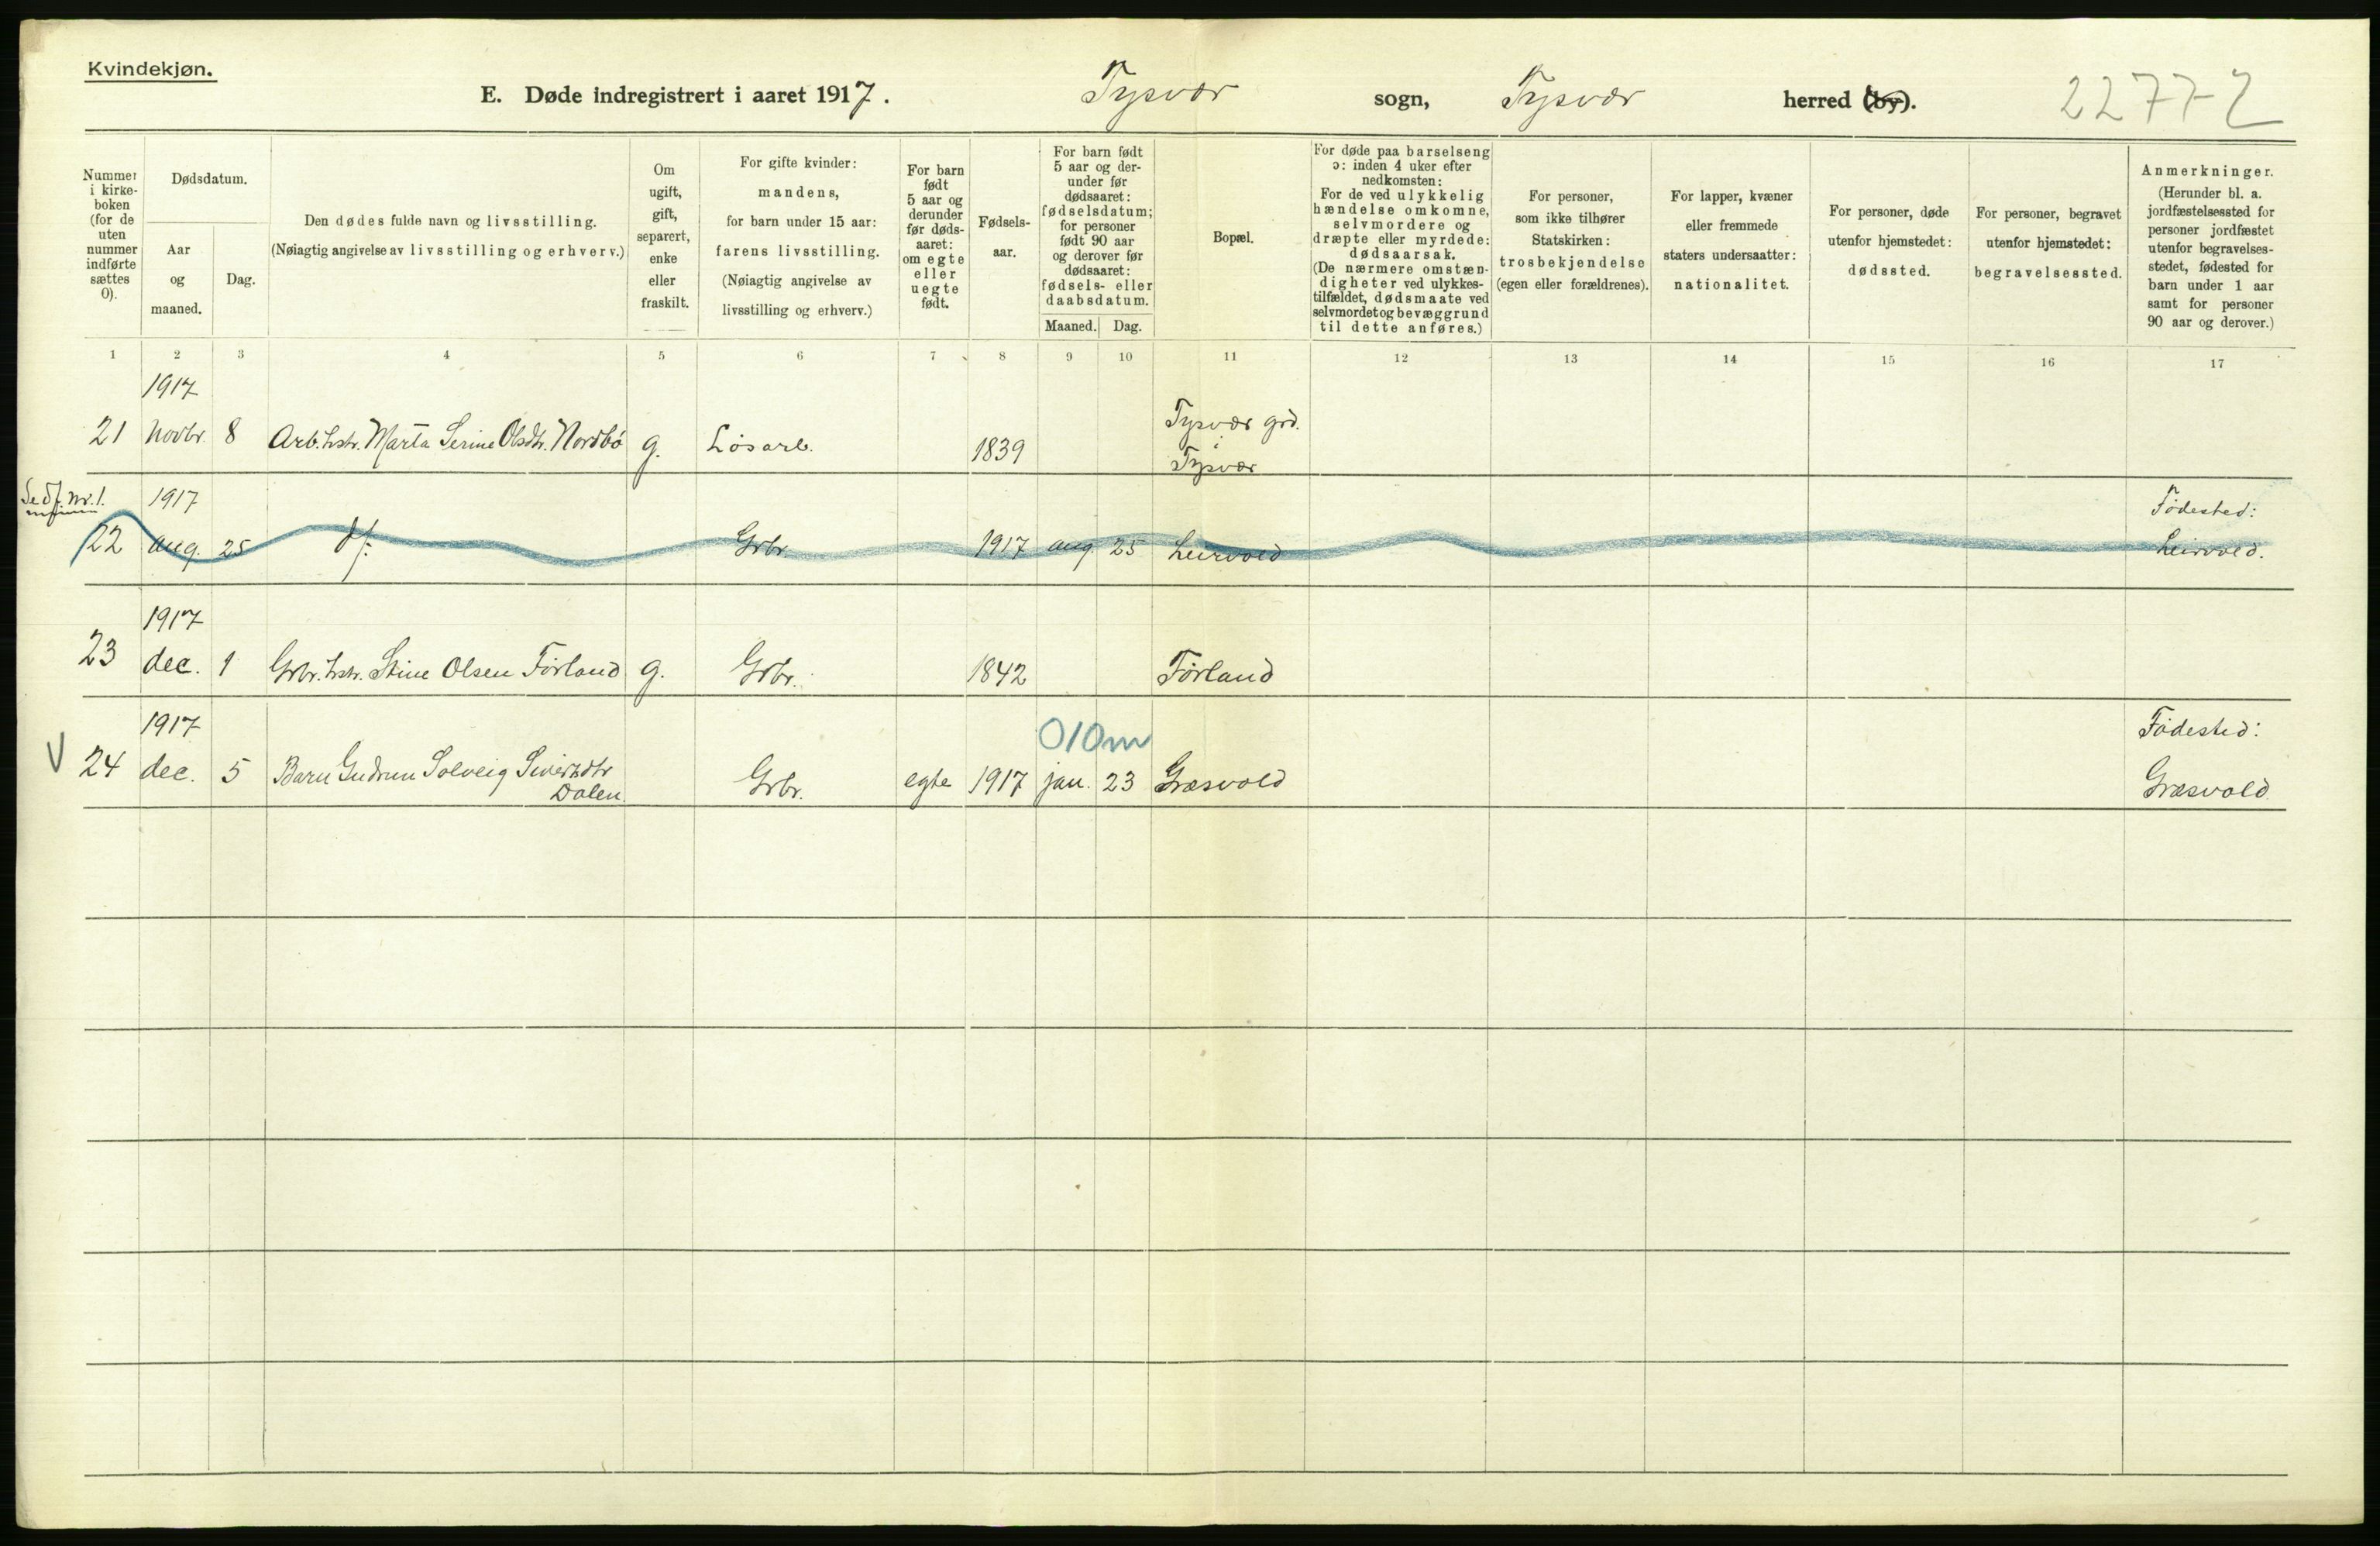 Kvindekjøn.
E. Døde indregistrert i aaret 1917. Tysvær sogn, Tysvær herred (by). 2277-2
Nummer i kirke-boken (for de uten nummer indførte sættes 0).
Dødsdatum.
Aar og maaned.
Dag.
Den dødes fulde navn og livsstilling.
(Nøiagtig angivelse av livsstilling og erhverv.)
Om ugift, gift, separert, enke eller fraskilt.
For gifte kvinder: mandens, for barn under 15 aar: farens livsstilling.
(Nøiagtig angivelse av livsstilling og erhverv.)
For barn født 5 aar og derunder før døds-aaret: om egte eller uegte født.
Fødsels-aar.
For barn født 5 aar og der-under før dødsaaret: fødselsdatum; for personer født 90 aar og derover før dødsaaret: fødsels- eller daabsdatum.
Maaned. Dag.
Bopæl.
For døde paa barselseng ɔ: inden 4 uker efter nedkomsten: For de ved ulykkelig hændelse omkomne, selvmordere og dræpte eller myrdede: dødsaarsak. (De nærmere omstæn-digheter ved ulykkes-tilfældet, dødsmaate ved selvmordet og bevæggrund til dette anføres.)
For personer, som ikke tilhører Statskirken: trosbekjendelse (egen eller forældrenes).
For lapper, kvæner eller fremmede staters undersaatter: nationalitet.
For personer, døde utenfor hjemstedet: dødssted.
For personer, begravet utenfor hjemstedet: begravelsessted.
Anmerkninger. (Herunder bl. a. jordfæstelsessted for personer jordfæstet utenfor begravelses-stedet, fødested for barn under 1 aar samt for personer 90 aar og derover.)
1 2 3 4 5 6 7 8 9 10 11 12 13 14 15 16 17
1917
21 Novbr. 8 Arb. hstr. Marta Serine Olsdtr. Nordbø g. Løsarb. 1839 Tysvær grd. i Tysvær
Se df. nr. 1.
1917 Fødested:
22 aug. 25 df. Grbr. 1917 aug. 25 Leirvold Leirvold.
1917
23 dec. 1 Grbr. hstr. Stine Olsen Førland g. Grbr. 1842 Førland
1917 010m Fødested:
V 24 dec. 5 Barn Gudrun Solveig Sivertsdtr Dalen Grbr. egte 1917 jan. 23 Græsvold Græsvold